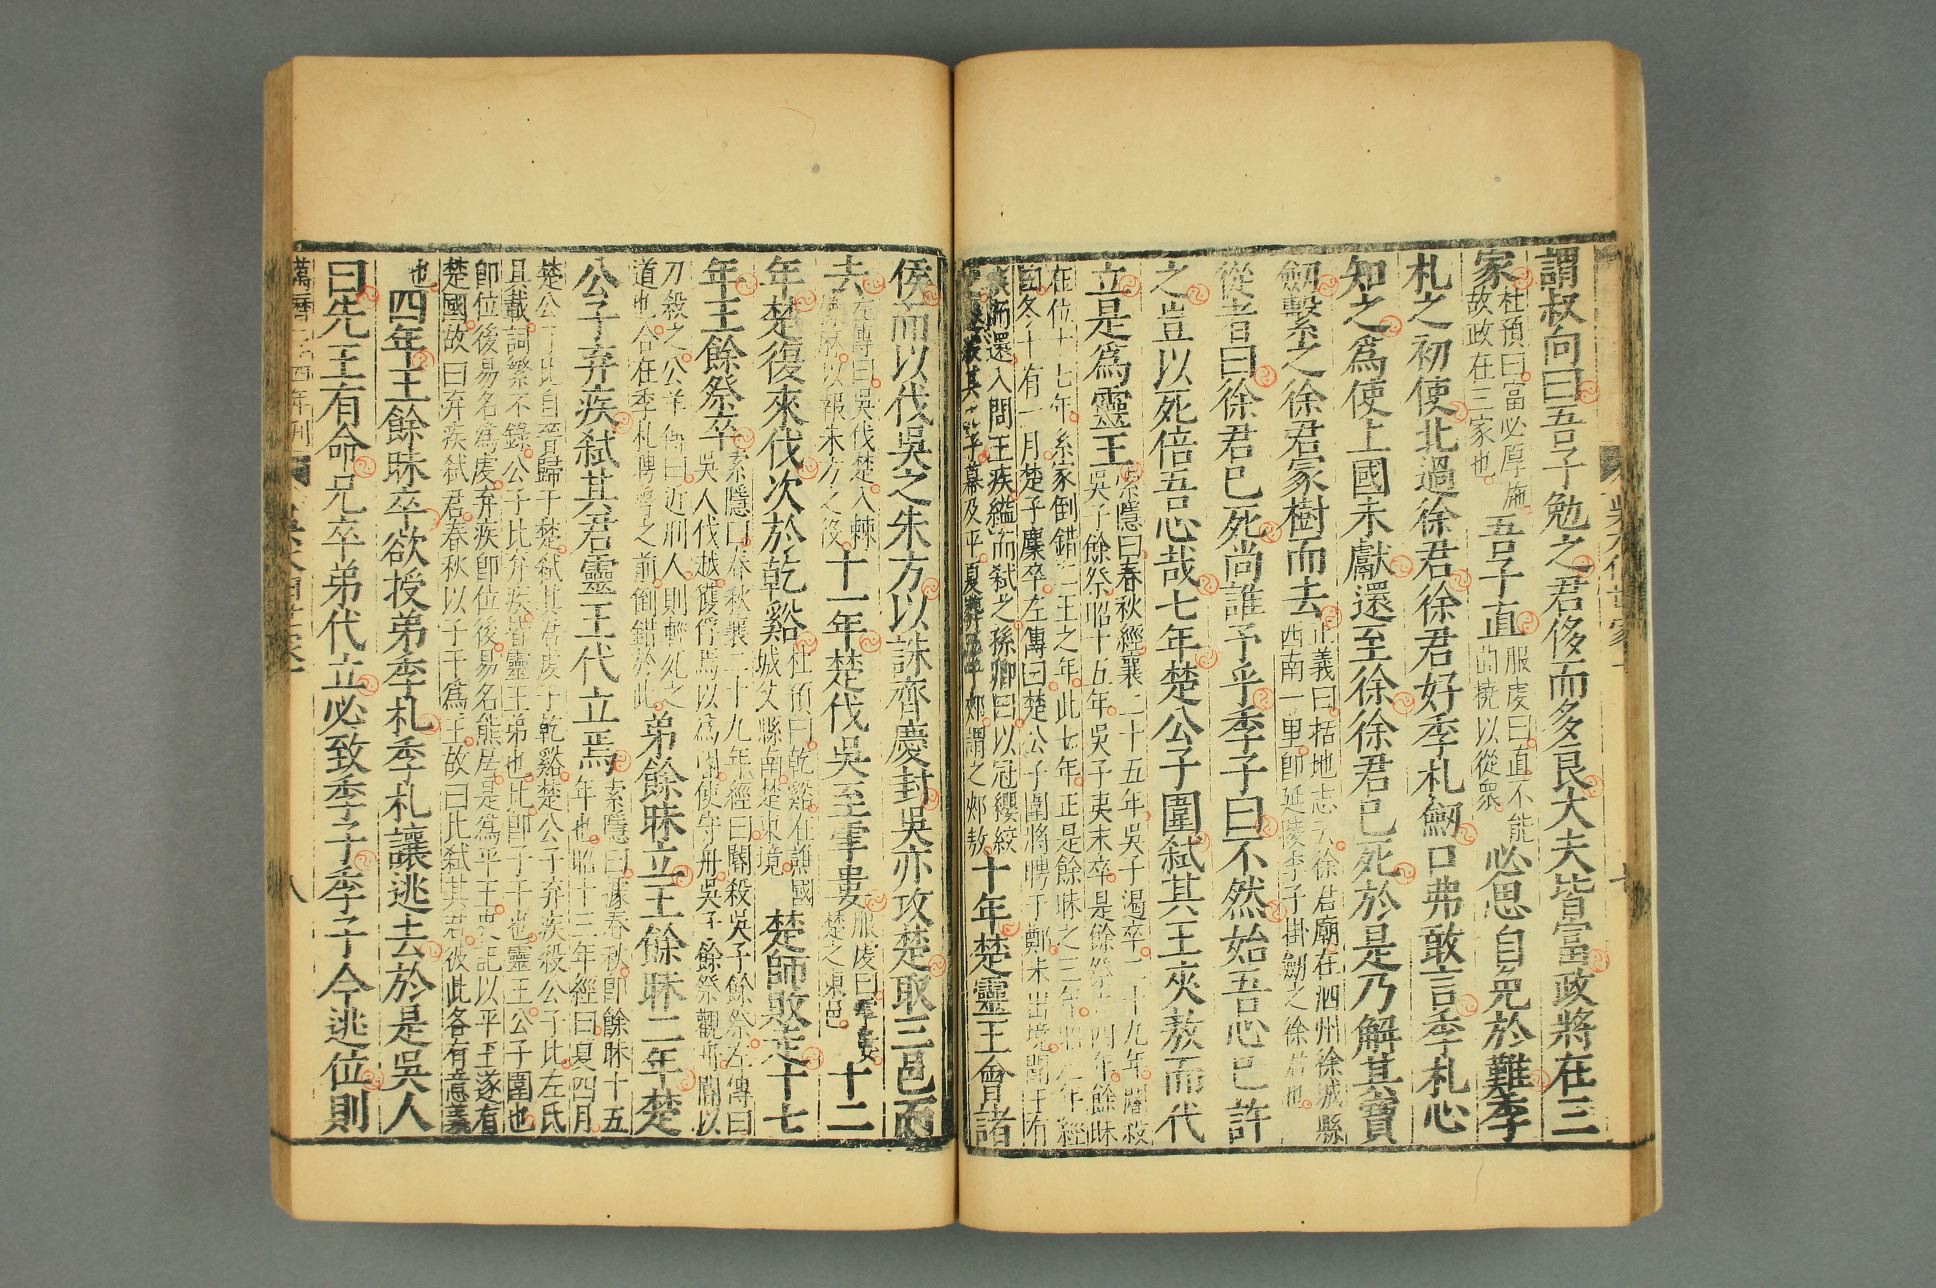 謂叔向曰吾子勉之君侈而多良大夫皆富政將在三
家杜預曰富必厚施故政在三家也吾子直服虔曰直不能曲撓以從衆必思自免於難季
札之初使北過徐君徐君好季札劒口弗敢言季札心
知之爲使上國未獻還至徐徐君已死於是乃解其寶
劒繫之徐君冢樹而去正義曰括地志云徐君廟在泗州徐城縣西南一里卽延陵季子掛劒之徐君也
從者曰徐君已死尚誰予乎季子曰不然始吾心已許
之豈以死倍吾心哉七年楚公子圍弑其王夾敖而代
立是爲靈王索隱曰春秋經襄二十五年吳子遏卒二十九年閽殺吳子餘祭昭十五年吳子夷末卒是餘祭四年餘眛
在位十七年系家倒錯二王之年此七年正是餘眛之三年昭元年經曰冬十有一月楚子麇卒左傳曰楚公子圍將聘于鄭未出境聞王有
疾而還入問王疾縊而弑之孫卿曰以冠纓絞之遂殺其子幕及平夏郟謂之郟敖十年楚靈王會諸
侯而以伐吳之朱方以誅齊慶封吳亦攻楚取三邑而
去左傳曰吳伐楚入棘櫟麻以報朱方之役十一年楚伐吳至雩婁服虔曰雩婁楚之東邑十二
年楚復來伐次於乾谿杜預曰乾谿在譙國城父縣南楚東境楚師敗走十七
年王餘祭卒索隱曰春秋襄二十九年經曰閽殺吳子餘祭左傳曰吳人伐越獲俘焉以爲閽使守舟吳子餘祭觀舟閽以
刀殺之公羊傳曰近刑人則輕死之道也合在季札聘魯之前倒錯於此弟餘眛立王餘眛二年楚
公子弃疾弑其君靈王代立焉索隱曰據春秋卽餘眛十五年也昭十三年經曰夏四月
楚公子比自晉歸于楚弑其君虔于乾谿楚公子弃疾殺公子比左氏具載詞繁不錄公子比弃疾皆靈王弟也比卽子干也靈王公子圍也
卽位後易名爲虔弃疾卽位後易名熊居是爲平王史記以平王遂有楚國故曰弃疾弑君春秋以子干爲王故曰比弑其君彼此各有意義
也四年王餘眛卒欲授弟季札季札讓逃去於是吳人
曰先王有命兄卒弟代立必致季子季子今逃位則
萬曆二十四年刊 吳太伯世家一 八